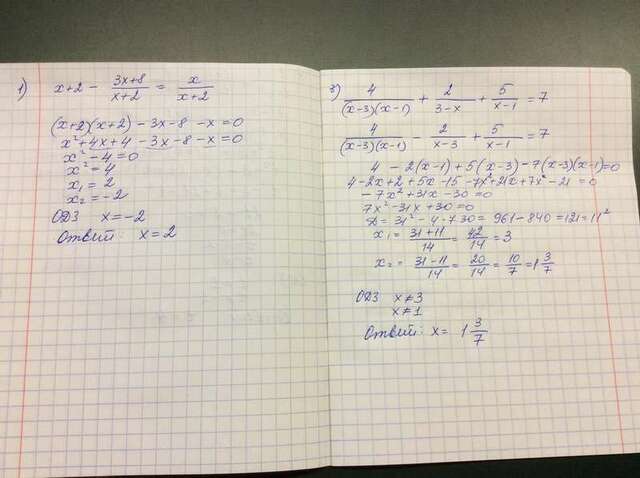 1) x+2 - (3x+8)/(x+2) = x/(x+2)
(x+2)(x+2) - 3x - 8 - x = 0
x² + 4x + 4 - 3x - 8 - x = 0
x² - 4 = 0
x² = 4
x₁ = 2
x₂ = -2
ОДЗ x = -2
Ответ: x = 2
3) 4/((x-3)(x-1)) + 2/(3-x) + 5/(x-1) = 7
4/((x-3)(x-1)) - 2/(x-3) + 5/(x-1) = 7
4 - 2(x-1) + 5(x-3) - 7(x-3)(x-1) = 0
4 - 2x + 2 + 5x - 15 - 7x² + 21x + 7x - 21 = 0
- 7x² + 31x - 30 = 0
7x² - 31x + 30 = 0
D = 31² - 4·7·30 = 961 - 840 = 121 = 11²
x₁ = (31+11)/14 = 42/14 = 3
x₂ = (31-11)/14 = 20/14 = 10/7 = 1 3/7
ОДЗ x ≠ 3
x ≠ 1
Ответ: x = 1 3/7